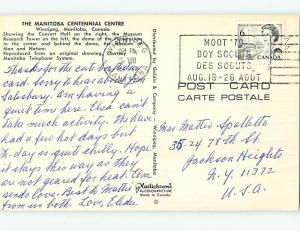 THE MANITOBA CENTENNIAL CENTRE
Winnipeg, Manitoba, Canada
Showing the Concert Hall on the right, the Museum
Research Tower on the left, the dome of the Planetarium
in the center and behind the dome, the Museum of
Man and Nature.
Reproduced from an original painting, courtesy
Manitoba Telephone System.
Thanks for the cute birthday
card. Sorry to hear about
Salisbury. Am having a
quiet time here. Elsa can't
take much activity. We have
had a few hot days but
to-day is quite chilly. Hope
it stays this way as they
are not geared for heat. Elsa
sends love. Best to Mattie
from us both. Love, Elida
Plastichrome
by COLOURPICTURE
Made in Canada
MOOT '7
BOY SCOUTS
DES SCOUTS
AUG. 19-26 AOÛT
6
CANADA
POST CARD
CARTE POSTALE
Mrs. Mattie Spalletta
35-24 78th St.
Jackson Heights
N.Y. 11372
U.S.A.